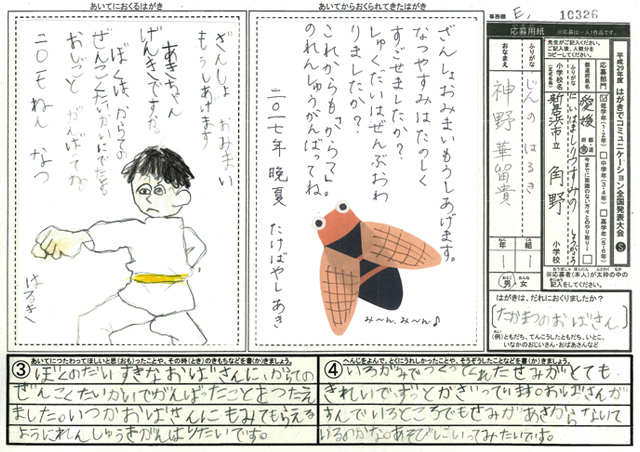 あいてにおくるはがき
ざんしょ おみまい
もうしあげます
あきちゃん
げんきですか。
ぼくは、からての
ぜんこくたいかいにでたよ。
おしごと がんばってね。
二〇一七ねん なつ
はるき
あいてからおくられてきたはがき
ざんしょおみまいもうしあげます。
なつやすみはたのしく
すごせましたか?
しゅくだいはぜんぶおわ
りましたか?
これからもからて
のれんしゅうがんばってね。
二〇一七年 晩夏 たけばやし あき
み〜ん、み〜ん♪
事務欄 E, 10326
応募用紙
※応募は一人1作品です。
平成29年度 はがきでコミュニケーション全国発表大会 S
先生がご記入ください。
ご記入後、人数分を
コピーしてください。
応募部門
低学年(1・2年)
中学年(3・4年)
高学年(5・6年)
都道府県名
愛媛
小学校名
新居浜市立 角野 小学校
ふりがな
じんの はるき
おなまえ
神野 華留貴
一年
一組
男・女
※応募者(本人)が太枠の中の
記入をしてください。
はがきは、だれにおくりましたか?
たかまつのおばさん
(例)ともだち、てんこうしたともだち、いとこ、
いなかのおじいさん・おばあさんなど
③ あいてにつたわってほしいと思(おも)ったことや、その時(とき)のきもちなどを書(か)きましょう。
ぼくのだいすきなおばさんに、からての
ぜんこくたいかいでがんばったことをつたえ
ました。いつかおばさんにもみてもらえる
ようにれんしゅうをがんばりたいです。
④ へんじをよんで、とくにうれしかったことや、そうぞうしたことなどを書(か)きましょう。
いろがみでつくってくれたせみがとても
きれいでずっとかざっています。おばさんが
すんでいるところでもせみがあさからないて
いるのかな。あそびにいってみたいです。